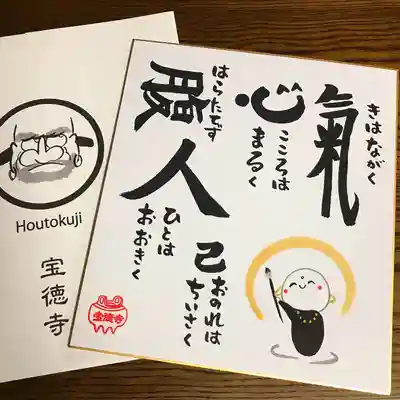 氣
きはながく
心
こころは
まるく
腹
はらたてず
人
ひとは
おおきく
己
おのれは
ちいさく
宝徳寺
Houtokuji
宝徳寺